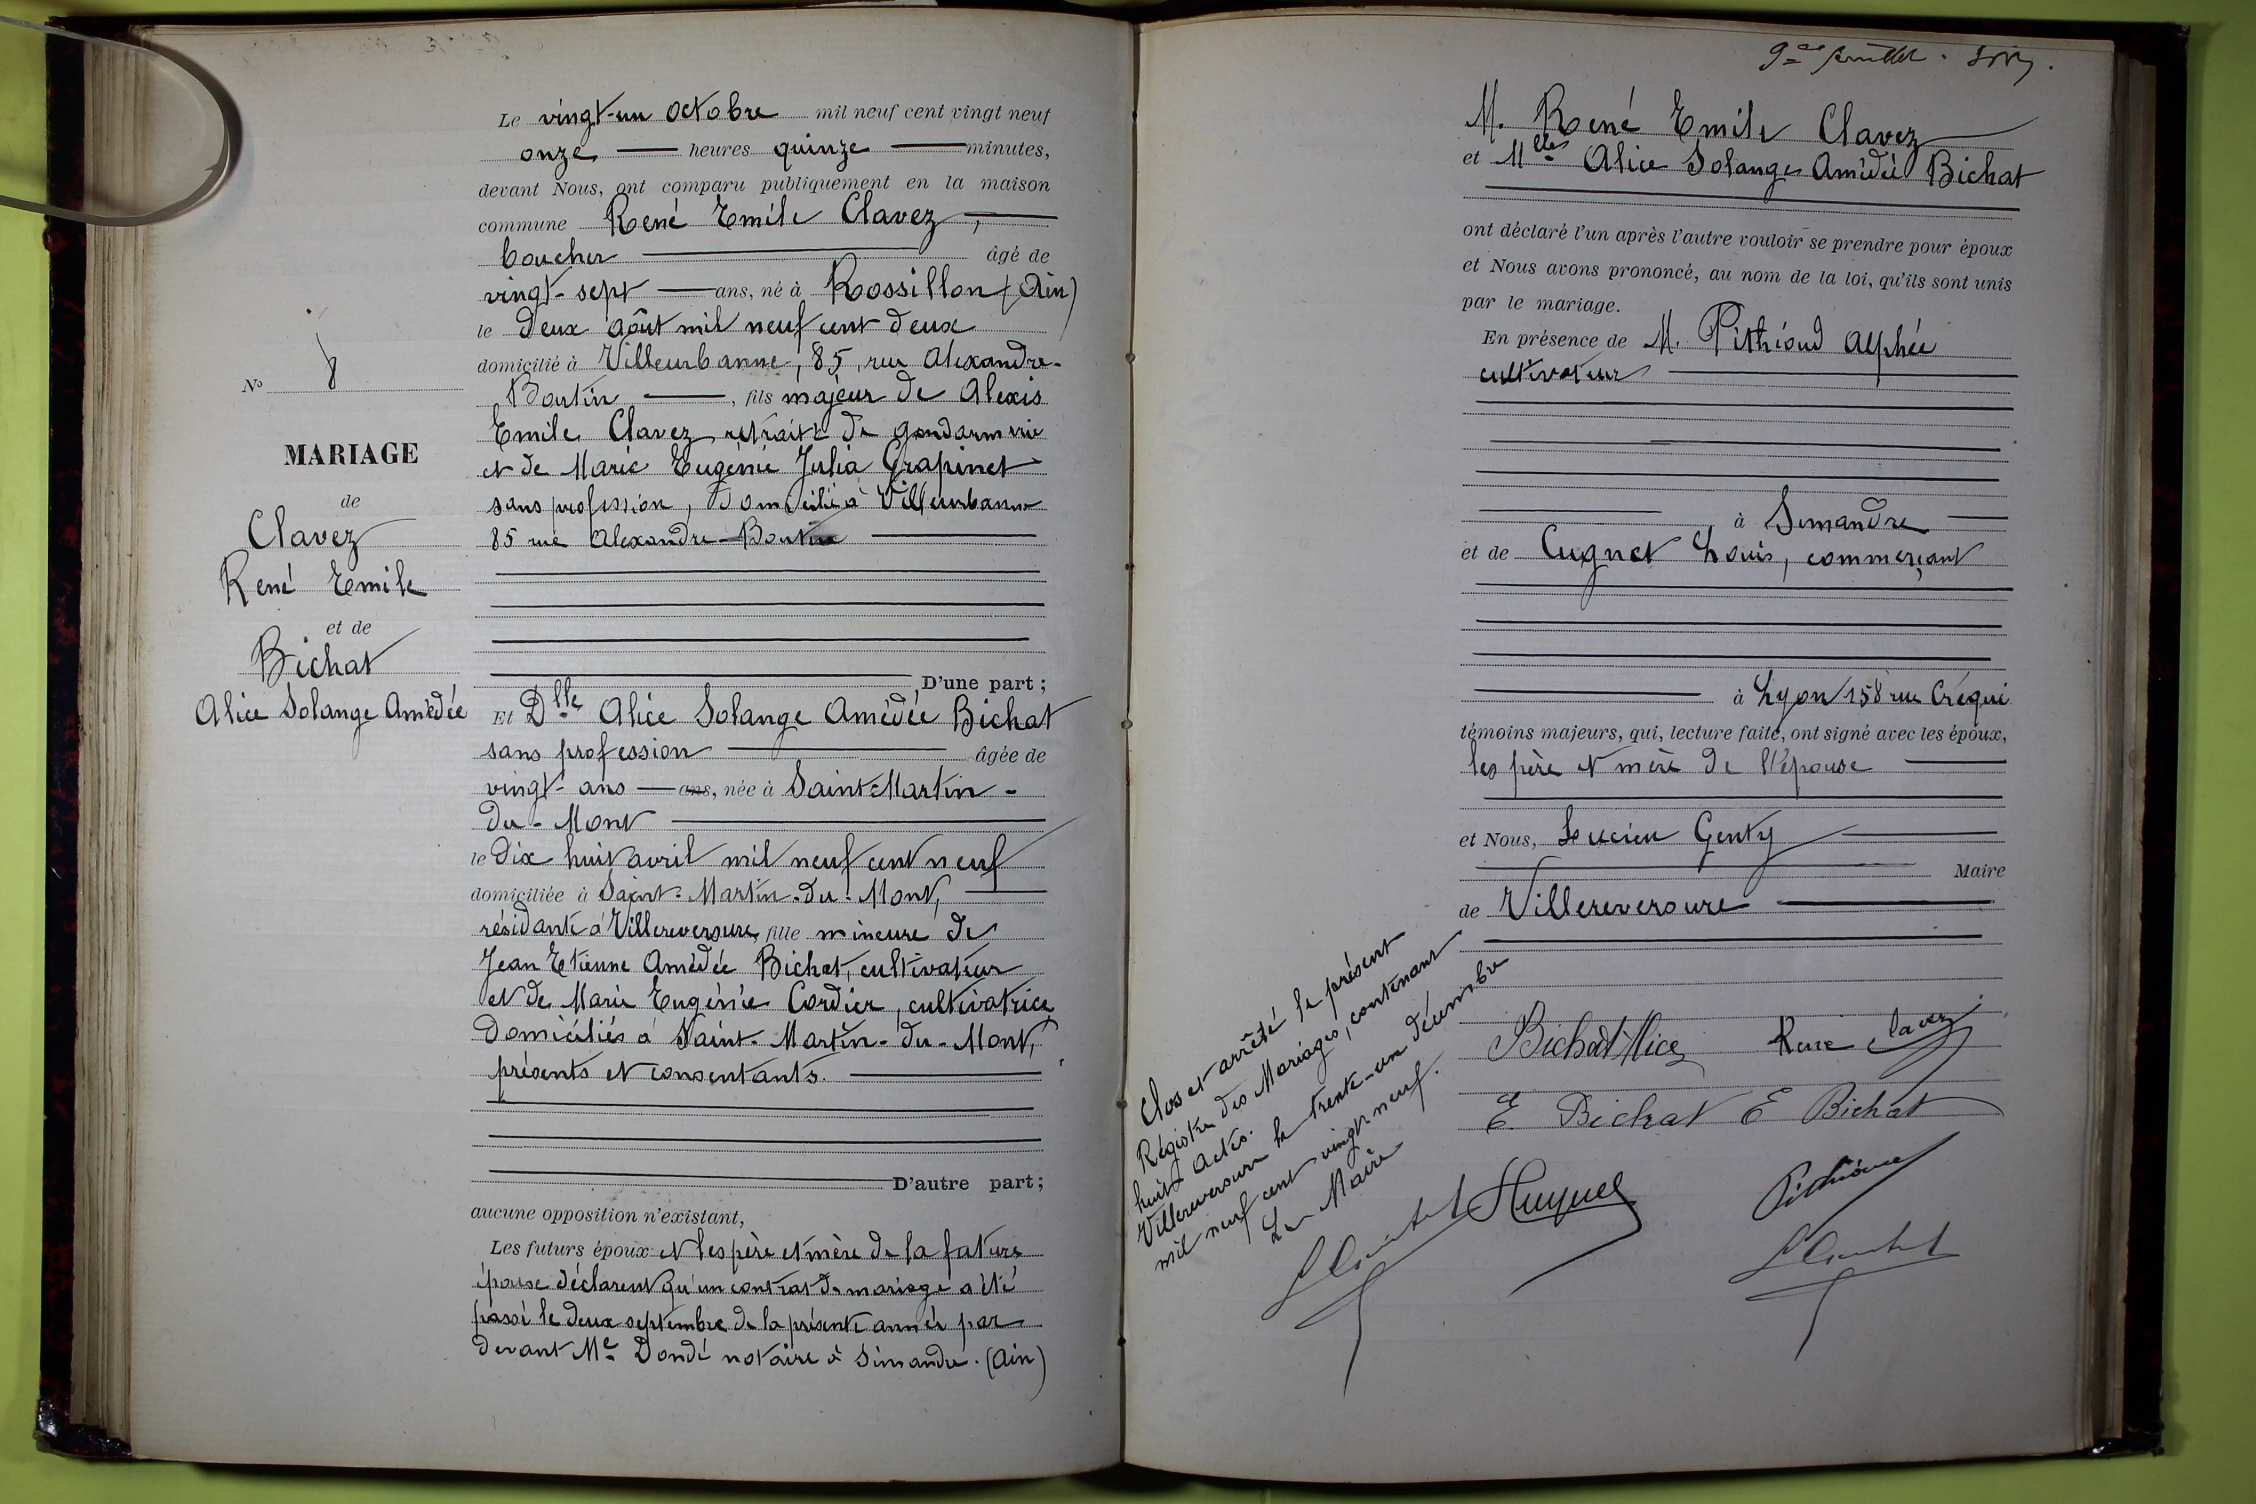 Le vingt-un octobre mil neuf cent vingt neuf
onze heures quinze minutes,
devant Nous, ont comparu publiquement en la maison
commune René Emile Clavez,
boucher âgé de
vingt-sept ans, né à Rossillon (Ain)
le deux août mil neuf cent deux
domicilié à Villeurbanne, 85, rue Alexandre-
Boutin, fils majeur de Alexis
Emile Clavez retraité de gendarmerie
et de Marie Eugénie Julia Grapinet
sans profession, domicilié à Villeurbanne
85 rue Alexandre-Boutin
D'une part;
Et Dlle Alice Solange Amédée Bichat
sans profession âgée de
vingt-ans ans, née à Saint-Martin-
du-Mont
le dix huit avril mil neuf cent neuf
domiciliée à Saint-Martin-du-Mont,
résidante à Villereversure, fille mineure de
Jean Etienne Amédée Bichat, cultivateur
et de Marie Eugénie Cordier, cultivatrice
domiciliés à Saint-Martin-du-Mont,
présents et consentants.
D'autre part;
aucune opposition n'existant,
Les futurs époux et les père et mère de la future
épouse déclarent qu'un contrat de mariage a été
passé le deux septembre de la présente année par
devant Me Dondé notaire à Simandre. (Ain)
No 8
MARIAGE
de
Clavez
René Emile
et de
Bichat
Alice Solange Amédée
9me feuillet.
M. René Emile Clavez
et Mlle Alice Solange Amédée Bichat
ont déclaré l'un après l'autre vouloir se prendre pour époux
et Nous avons prononcé, au nom de la loi, qu'ils sont unis
par le mariage.
En présence de M. Pithioud Alphée
cultivateur
à Simandre
et de Cugnet Louis, commerçant
à Lyon 158 rue Créqui
témoins majeurs, qui, lecture faite, ont signé avec les époux,
les père et mère de l'épouse
et Nous, Lucien Genty
Maire
de Villereversure
Bichat Alice René Clavez
E Bichat E Bichat
Clos et arrêté le présent
Régistre des Mariages, contenant
huit actes.
Villereversure le trente-un décembre
mil neuf cent vingt neuf.
Le Maire